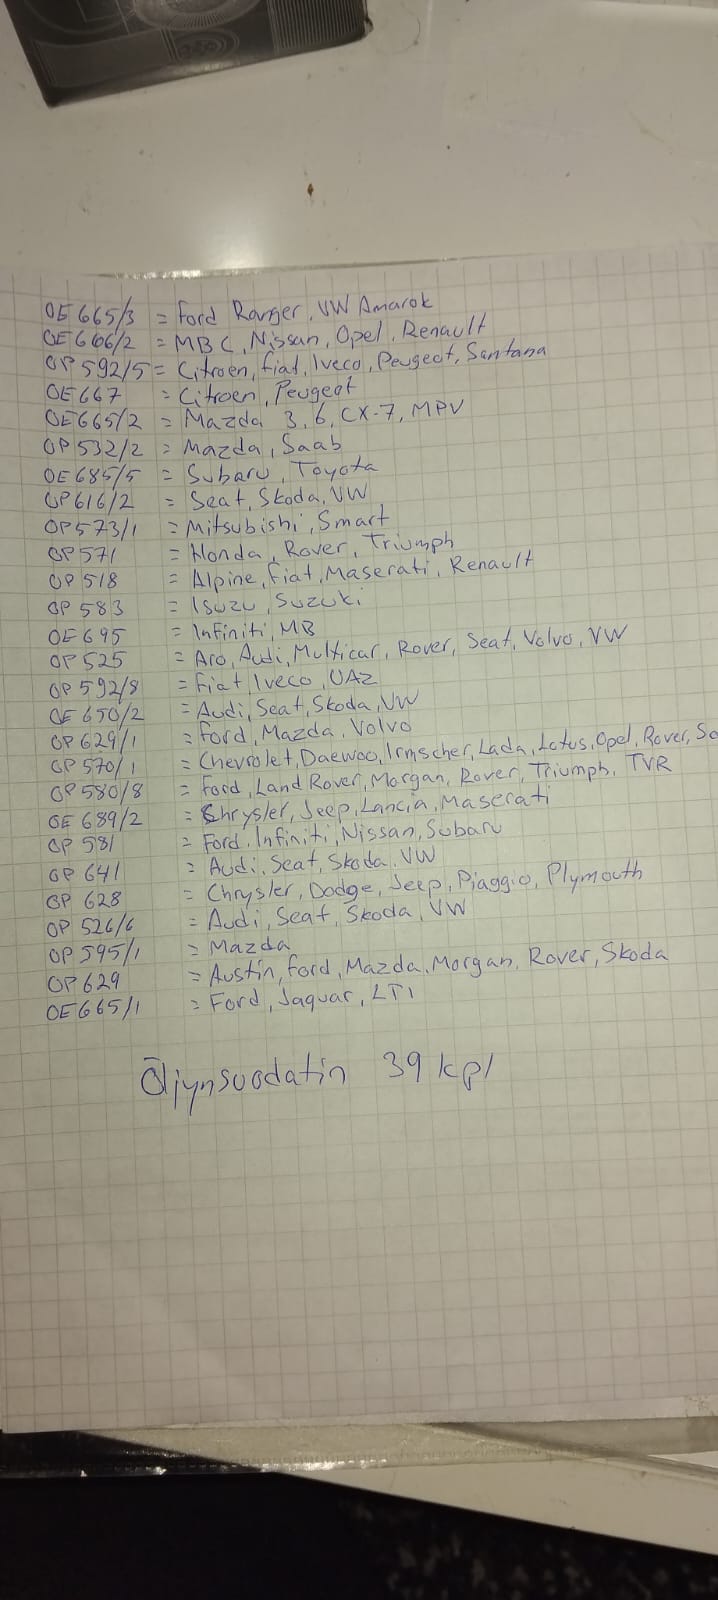 OE665/3 = Ford Ranger, VW Amarok
OE666/2 = MBC, Nissan, Opel, Renault
OP592/5 = Citroen, Fiat, Iveco, Peugeot, Santana
OE667 = Citroen, Peugeot
OE665/2 = Mazda 3, 6, CX-7, MPV
OP532/2 = Mazda, Saab
OE685/5 = Subaru, Toyota
OP616/2 = Seat, Skoda, VW
OP573/1 = Mitsubishi, Smart
OP571 = Honda, Rover, Triumph
OP518 = Alpine, Fiat, Maserati, Renault
OP583 = Isuzu, Suzuki
OE695 = Infiniti, MB
OP525 = Aro, Audi, Multicar, Rover, Seat, Volvo, VW
OP592/8 = Fiat, Iveco, UAZ
OE650/2 = Audi, Seat, Skoda, VW
OP629/1 = Ford, Mazda, Volvo
OP570/1 = Chevrolet, Daewoo, Irmscher, Lada, Lotus, Opel, Rover, Sa
OP580/8 = Ford, Land Rover, Morgan, Rover, Triumph, TVR
OE689/2 = Chrysler, Jeep, Lancia, Maserati
OP581 = Ford, Infiniti, Nissan, Subaru
OP641 = Audi, Seat, Skoda, VW
OP628 = Chrysler, Dodge, Jeep, Piaggio, Plymouth
OP526/6 = Audi, Seat, Skoda, VW
OP595/1 = Mazda
OP629 = Austin, Ford, Mazda, Morgan, Rover, Skoda
OE665/1 = Ford, Jaquar, LTI
Öljynsuodatin 39 kpl